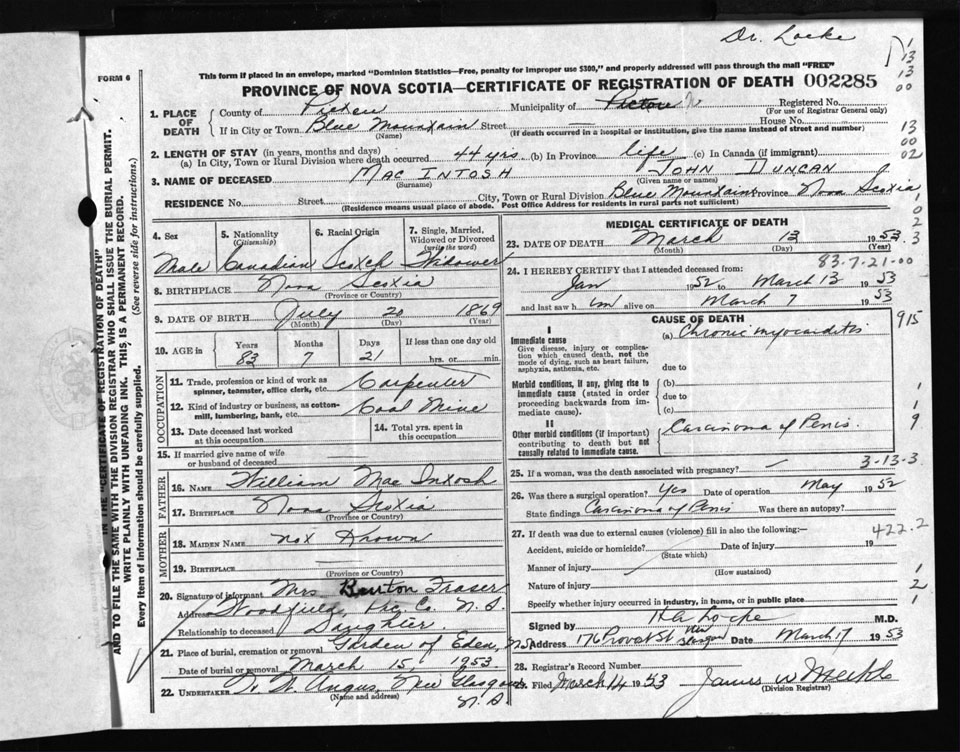 Dr. Locke
This form if placed in an envelope, marked "Dominion Statistics—Free, penalty for improper use $300," and properly addressed will pass through the mail "FREE"
FORM 6
PROVINCE OF NOVA SCOTIA—CERTIFICATE OF REGISTRATION OF DEATH 002285
1. PLACE OF DEATH
County of Pictou Municipality of Pictou Registered No.
(For use of Registrar General only)
If in City or Town Blue Mountain Street — House No.
(Name) (If death occurred in a hospital or institution, give the name instead of street and number)
2. LENGTH OF STAY (in years, months and days)
(a) In City, Town or Rural Division where death occurred 44 yrs (b) In Province life (c) In Canada (if immigrant)
3. NAME OF DECEASED MAC INTOSH JOHN DUNCAN
(Surname) (Given name or names)
RESIDENCE No. Street City, Town or Rural Division Blue Mountain Province Nova Scotia
(Residence means usual place of abode. Post Office Address for residents in rural parts not sufficient)
4. Sex
Male
5. Nationality
(Citizenship)
Canadian
6. Racial Origin
Scotch
7. Single, Married, Widowed or Divorced
(write the word)
Widower
8. BIRTHPLACE Nova Scotia
(Province or Country)
9. DATE OF BIRTH July 20 1869
(Month) (Day) (Year)
10. AGE in Years Months Days If less than one day old
83 7 21 hrs. or min.
OCCUPATION
11. Trade, profession or kind of work as spinner, teamster, office clerk, etc. Carpenter
12. Kind of industry or business, as cotton-mill, lumbering, bank, etc. Coal Mine
13. Date deceased last worked at this occupation
14. Total yrs. spent in this occupation
15. If married give name of wife or husband of deceased
FATHER
16. NAME William Mac Intosh
17. BIRTHPLACE Nova Scotia
(Province or Country)
MOTHER
18. MAIDEN NAME not known
19. BIRTHPLACE
(Province or Country)
20. Signature of informant Mrs Burton Fraser
Address Woodfield, Pic. Co. N.S.
Relationship to deceased Daughter.
21. Place of burial, cremation or removal Garden of Eden, N.S.
Date of burial or removal March 15 1953
22. UNDERTAKER Angus, New Glasgow
(Name and address) N.S.
MEDICAL CERTIFICATE OF DEATH
23. DATE OF DEATH March 13 1953
(Month) (Day) (Year)
83-7-21-00
24. I HEREBY CERTIFY that I attended deceased from:
Jan 1952 to March 13 1953
and last saw him alive on March 7 1953
CAUSE OF DEATH
I
Immediate cause
Give disease, injury or complication which caused death, not the mode of dying, such as heart failure, asphyxia, asthenia, etc.
(a) Chronic myocarditis
due to
Morbid conditions, if any, giving rise to immediate cause (stated in order proceeding backwards from immediate cause).
(b)
due to
(c)
II
Other morbid conditions (if important) contributing to death but not causally related to immediate cause.
Carcinoma of Penis.
3-13-3
25. If a woman, was the death associated with pregnancy? —
26. Was there a surgical operation? Yes Date of operation May 1952
State findings Carcinoma of Penis Was there an autopsy?
27. If death was due to external causes (violence) fill in also the following:—
422.2
Accident, suicide or homicide? Date of injury 19
(State which)
Manner of injury
(How sustained)
Nature of injury
Specify whether injury occurred in industry, in home, or in public place
Signed by H A Locke M.D.
Address 176 Provost St New Glasgow Date March 17 1953
28. Registrar's Record Number
29. Filed March 14 1953 James W
(Division Registrar)
915
AND TO FILE THE SAME WITH THE DIVISION REGISTRAR WHO SHALL ISSUE THE BURIAL PERMIT.
(See reverse side for instructions.)
WRITE PLAINLY WITH UNFADING INK. THIS IS A PERMANENT RECORD.
Every item of information should be carefully supplied.